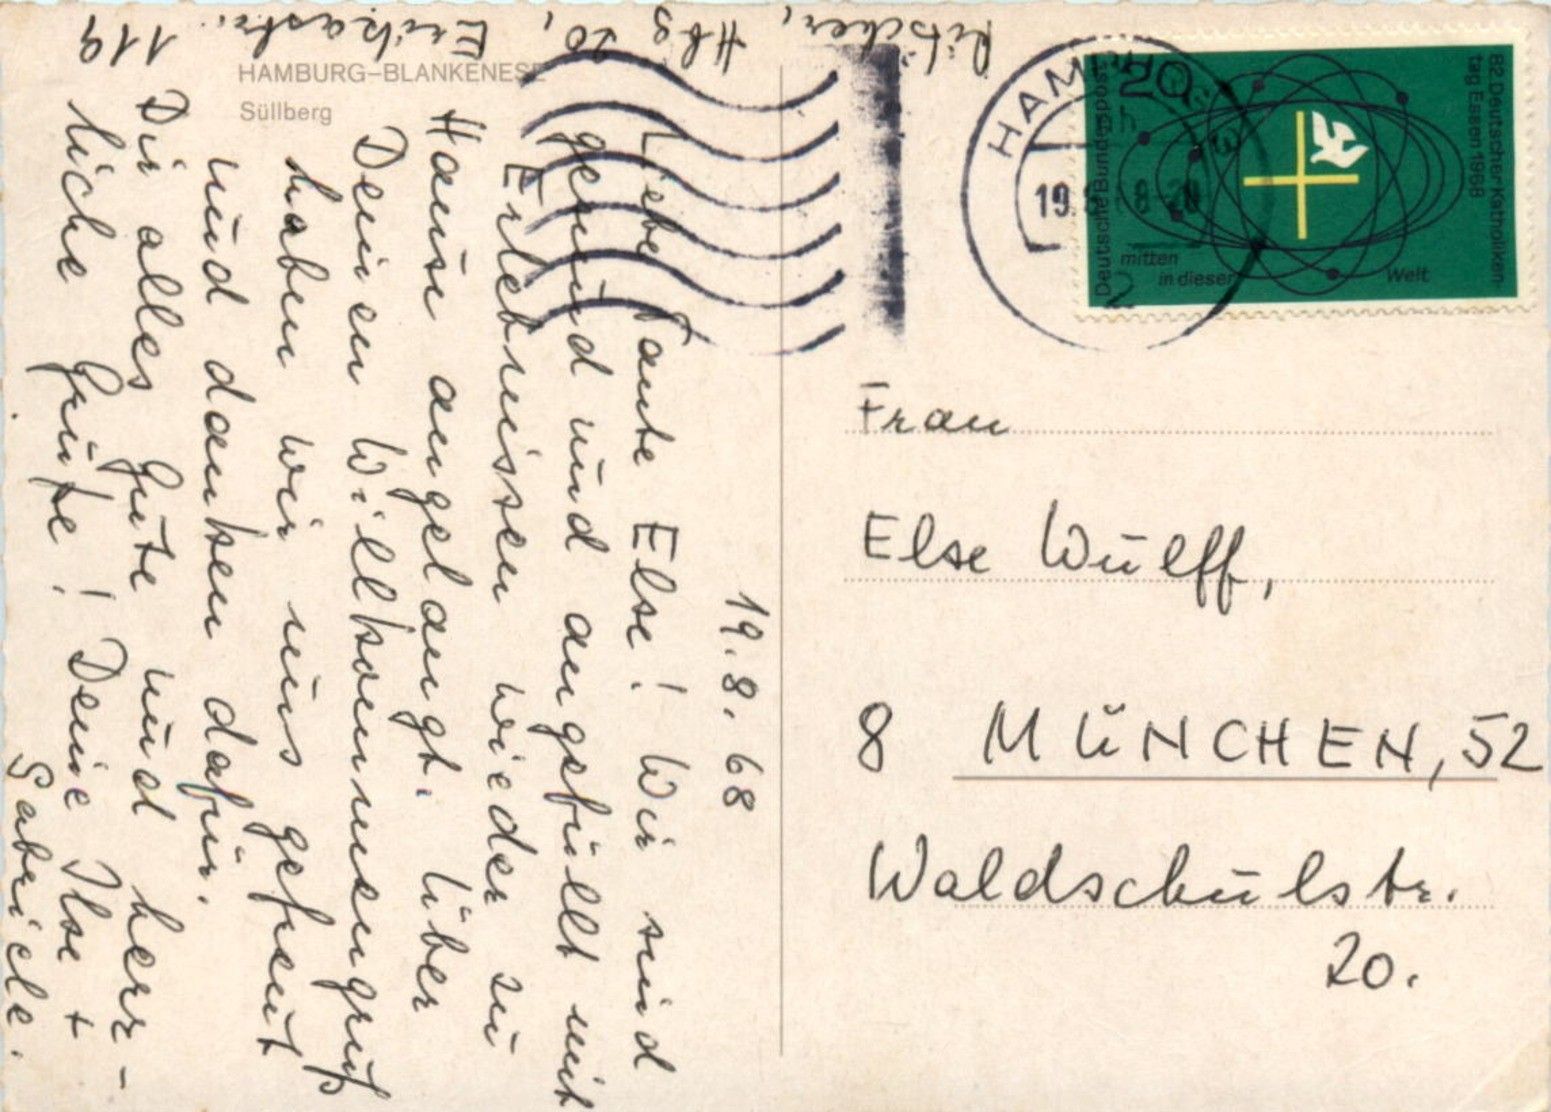 HAMBURG-BLANKENESE
Süllberg
Ritscher, Hbg 20, Erikastr. 119
19.8.68
Liebe Tante Else! Wir sind
gesund und angefüllt mit
Erlebnissen wieder zu
Hause angelangt. Über
Deinen Willkommensgruß
haben wir uns gefreut
und danken dafür.
Dir alles Gute und herz-
liche Grüße! Deine Ilse +
Gabriele.
HAMBURG
19.8.68-20
2
20
Deutsche Bundespost
82. Deutscher Katholiken-
tag Essen 1968
mitten
in dieser Welt
Frau
Else Wulff,
8 MÜNCHEN, 52
Waldschulstr.
20.